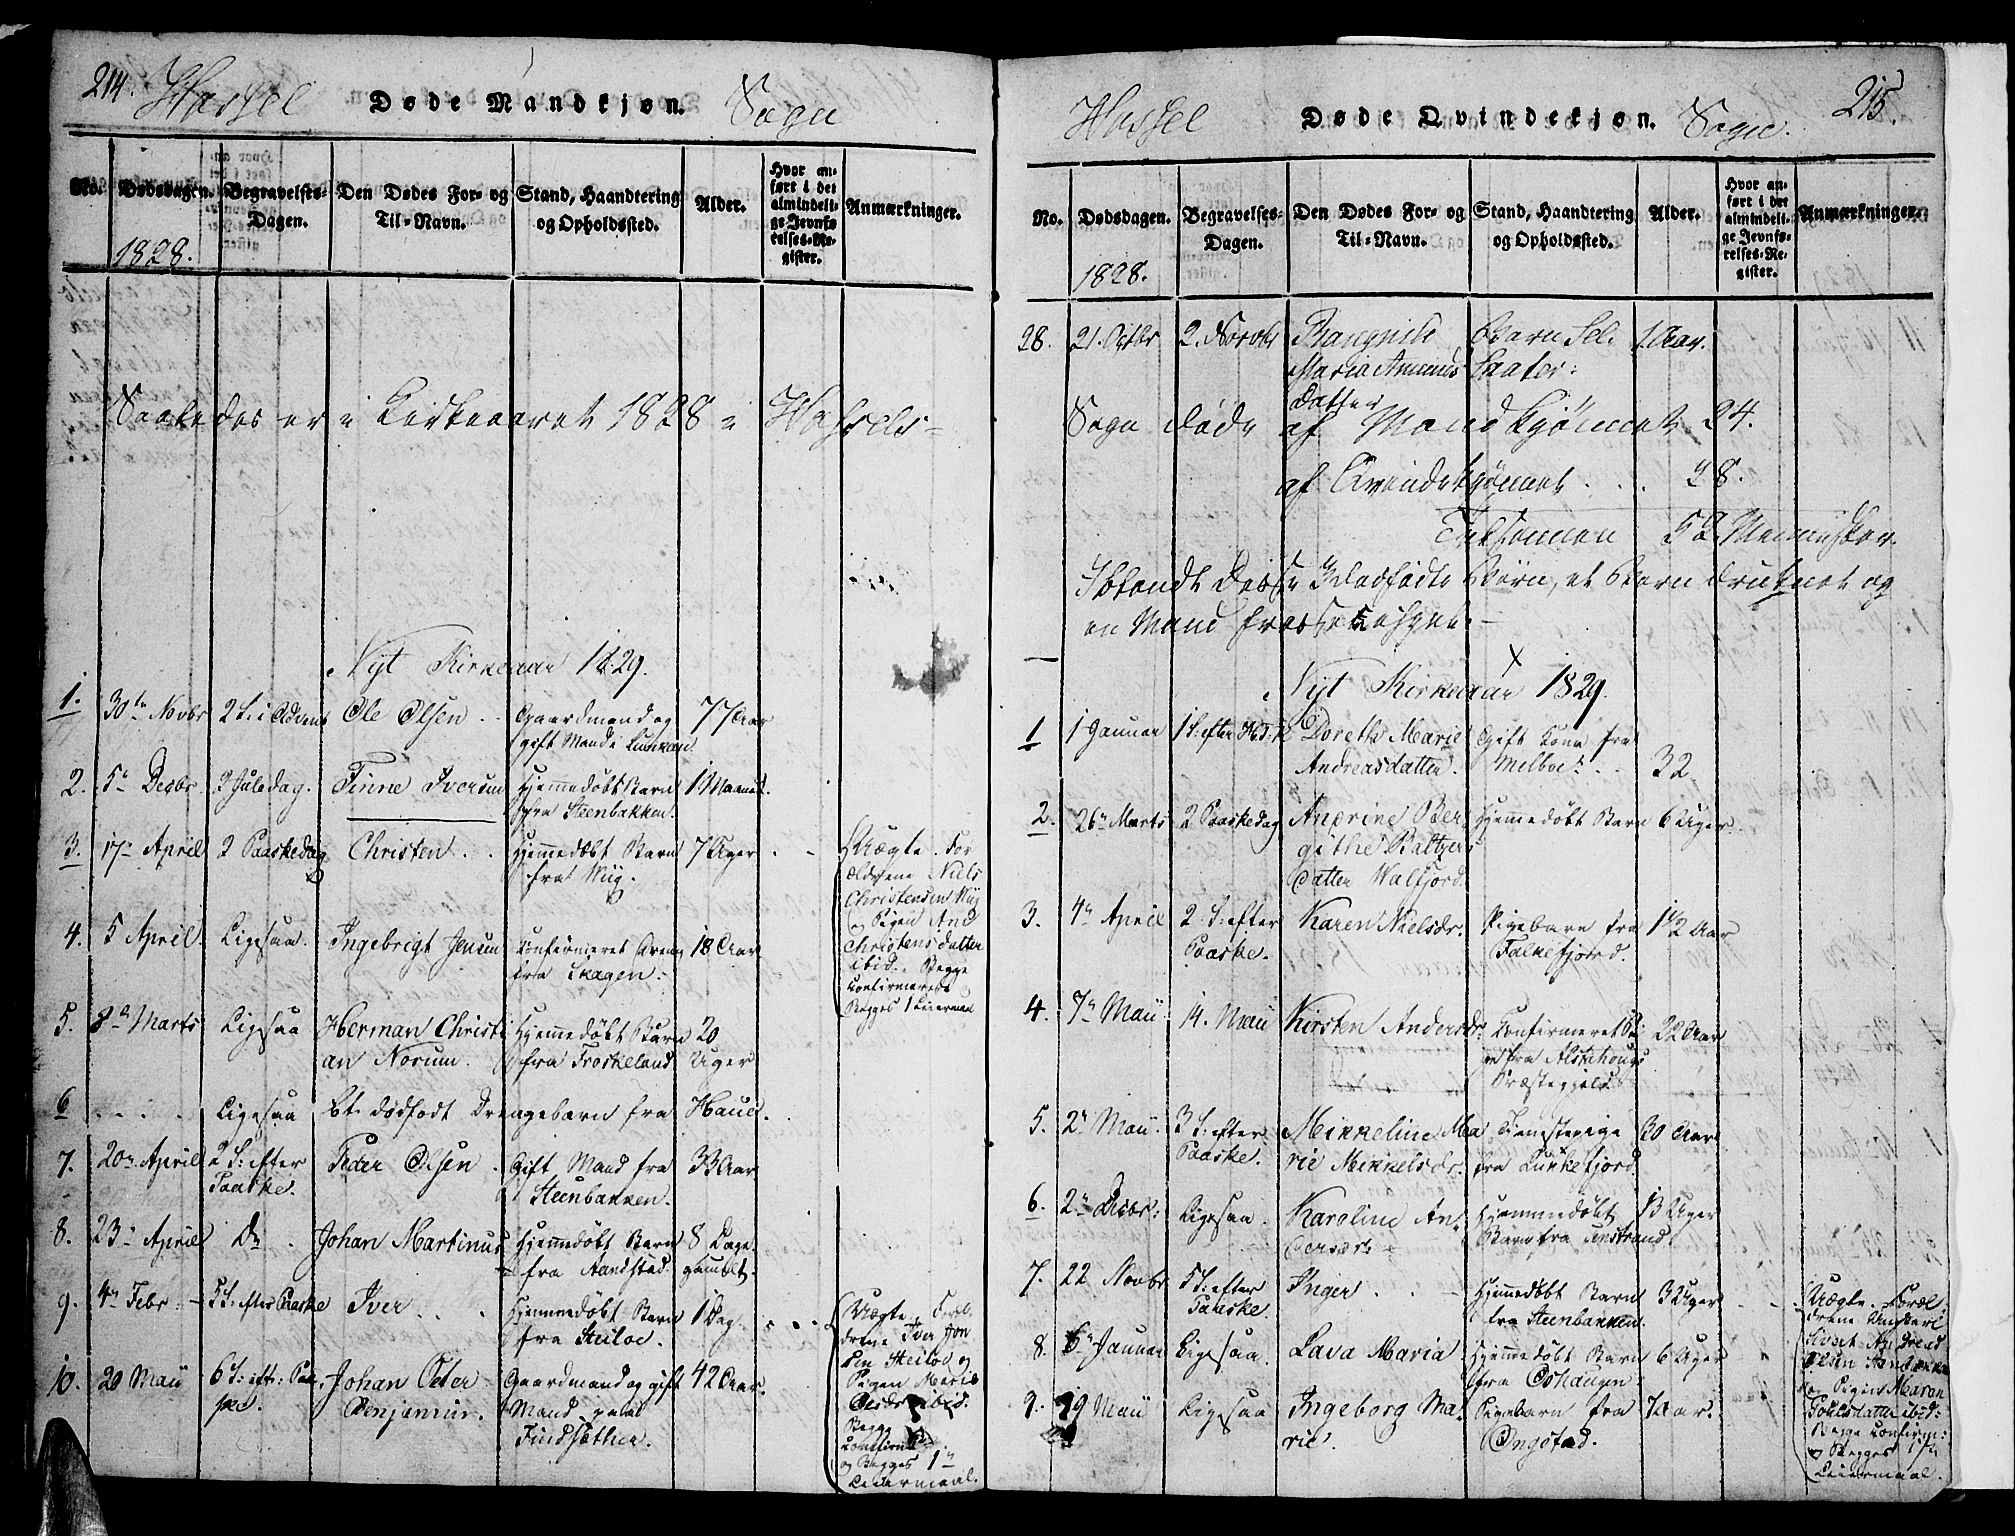 214. Hassel Døde Mandkjøn. Sogn
No. Dødsdagen. Begravelses-Dagen. Den Dødes For- og Til-Navn. Stand, Haandtering og Opholdssted. Alder. Hvor anført i det almindelige Jevnførelses-Register. Anmærkninger.
1828.
Saaledes er i Kirkeaaret 1828 i Hassels-
Nyt Kirkeaar 1829.
1. 30te Novbr 2 S: i Advent Ole Olsen Gaardmand og gift Mand i 77 Aar
2. 5te Decbr 2 Juledag. Tinne Iversen Hjemmedøbt Barn fra Steenbakken. 1 Maaned.
3. 17de April 2 Paaskedag Christen Hjemmedøbt Barn fra Wiig. 7 Uger
Uægte. For
ældrene Niels
Christensen Wiig
og Pigen Ane
Christensdatter
ibid. Begge
Confirmerede
Begges 1 Leiermaal
4. 5 April. Ligesaa. Ingebrigt Jensen Confirmeret Dreng fra Skagen. 18 Aar
5. 8de Marts Ligesaa Herman Christian Norum. Hjemmedøbt Barn fra Froskeland 20 Uger
6 . . . . Ligesaa Et dødfødt Drengebarn fra Hauel.
7. 20de April 2 S: efter Paaske. Peder Olsen Gift Mand fra Steenbakken. 33 Aar
8. 23de April Do Johan Martinus Hjemmedøbt Barn fra Sandstad. 8 Dage gammelt.
9. 4de Febr 5 S: efter Paaske Iver Hjemmedøbt Barn fra Steiloe. 1 Dag.
Uægte. Forældrene Iver Jensen Steiloe og
Pigen Maria
ibid.
Begge
Confirm:
og Begges 1te
Leiermaal.
10. 20 Maii 6 S: eft: Paaske. Johan Peter Benjamins. Gaardmand og gift Mand paa Findsæther. 42 Aar.
Hassel Døde Qvindekjøn. Sogn. 215.
No. Dødsdagen. Begravelses-Dagen. Den Dødes For- og Til-Navn. Stand, Haandtering og Opholdssted. Alder. Hvor anført i det almindelige Jevnførelses-Register. Anmærkninger.
1828.
28. 21. Octbr 2. Novbr Ragnild Maria Amunds Datter Barn Sel. Saater: 1 Aar.
Sogn døde af Mandkjønnet 24.
af Qvindekjønnet . . . 28.
Tilsammen 52 Mennesker
Iblandt Disse 3 dødfødte Børn, et Barn druknet og
en Mand
Nyt Kirkeaar 1829.
1 1 Januar 1 S: efter H: 3 K: Dorethe Marie Andreasdatter. Gift Kone fra Melboe. 32
2. 26de Marts 2 Paaskedag Anerine Bergithe Baltzersdatter Walfjord. Hjemmedøbt Barn 6 Uger.
3. 4de April 2 S: efter Paaske. Karen Nielsdr. Pigebarn fra Falkefjord. 1 1/2 Aar
4. 7de Maii 14. Maii Kirsten Andersdr. Confirmeret Pige fra Alstahougs Præstegjeld. 22 Aar
5. 2de Maii. 3 S: efter Paaske. Mikkeline Marie Mikkelsdr. Tienestepige fra Lunkefjord. 30 Aar
6. 2de Decbr: Ligesaa. Karoline Andersdr. Hjemmedøbt Barn fra 13 Uger
7. 22 Novbr 5 S: efter Paaske. Inger Hjemmedøbt Barn fra Steenbakken. 3 Uger
Uægte. Forældrene Ungkarl
Sivert Andreas
Olsen
og Pigen Maren
ibid:
Begge Confirm:
og Begges 1te
Leiermaal.
8. 6te Januar Ligesaa. Lava Maria Hjemmedøbt Barn fra 6 Uger
9. 19 Maii Ligesaa Ingeborg Marie. Pigebarn fra Ongstad. 7 Aar.